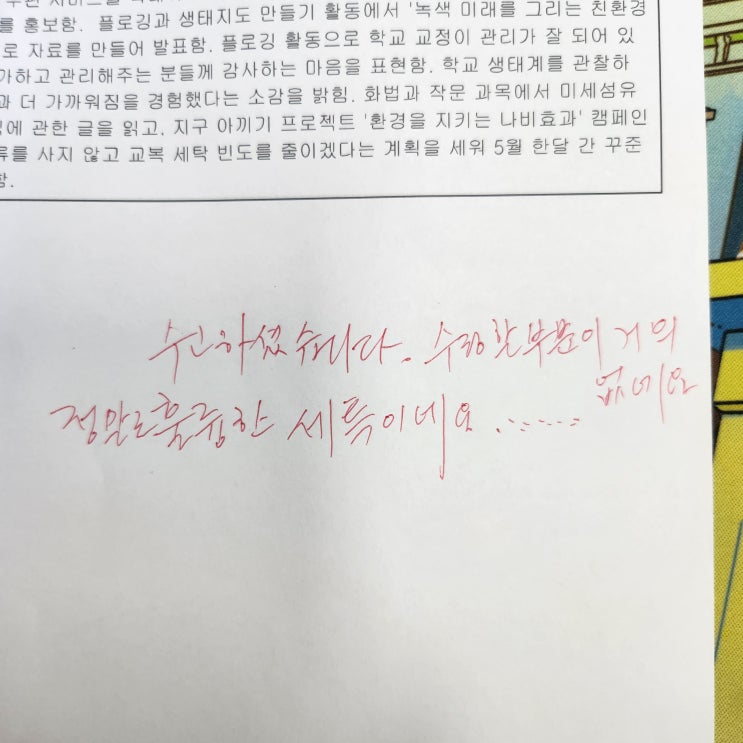 를 홍보함. 플로깅과 생태지도 만들기 활동에서 '녹색 미래를 그리는 친환경
로 자료를 만들어 발표함. 플로깅 활동으로 학교 교정이 관리가 잘 되어 있
가하고 관리해주는 분들께 감사하는 마음을 표현함. 학교 생태계를 관찰하
과 더 가까워짐을 경험했다는 소감을 밝힘. 화법과 작문 과목에서 미세섬유
에 관한 글을 읽고, 지구 아끼기 프로젝트 '환경을 지키는 나비효과' 캠페인
류를 사지 않고 교복 세탁 빈도를 줄이겠다는 계획을 세워 5월 한달 간 꾸준
함.
수고하셨습니다. 수정할 부분이 거의
없네요
정말로 훌륭한 세특이네요.......